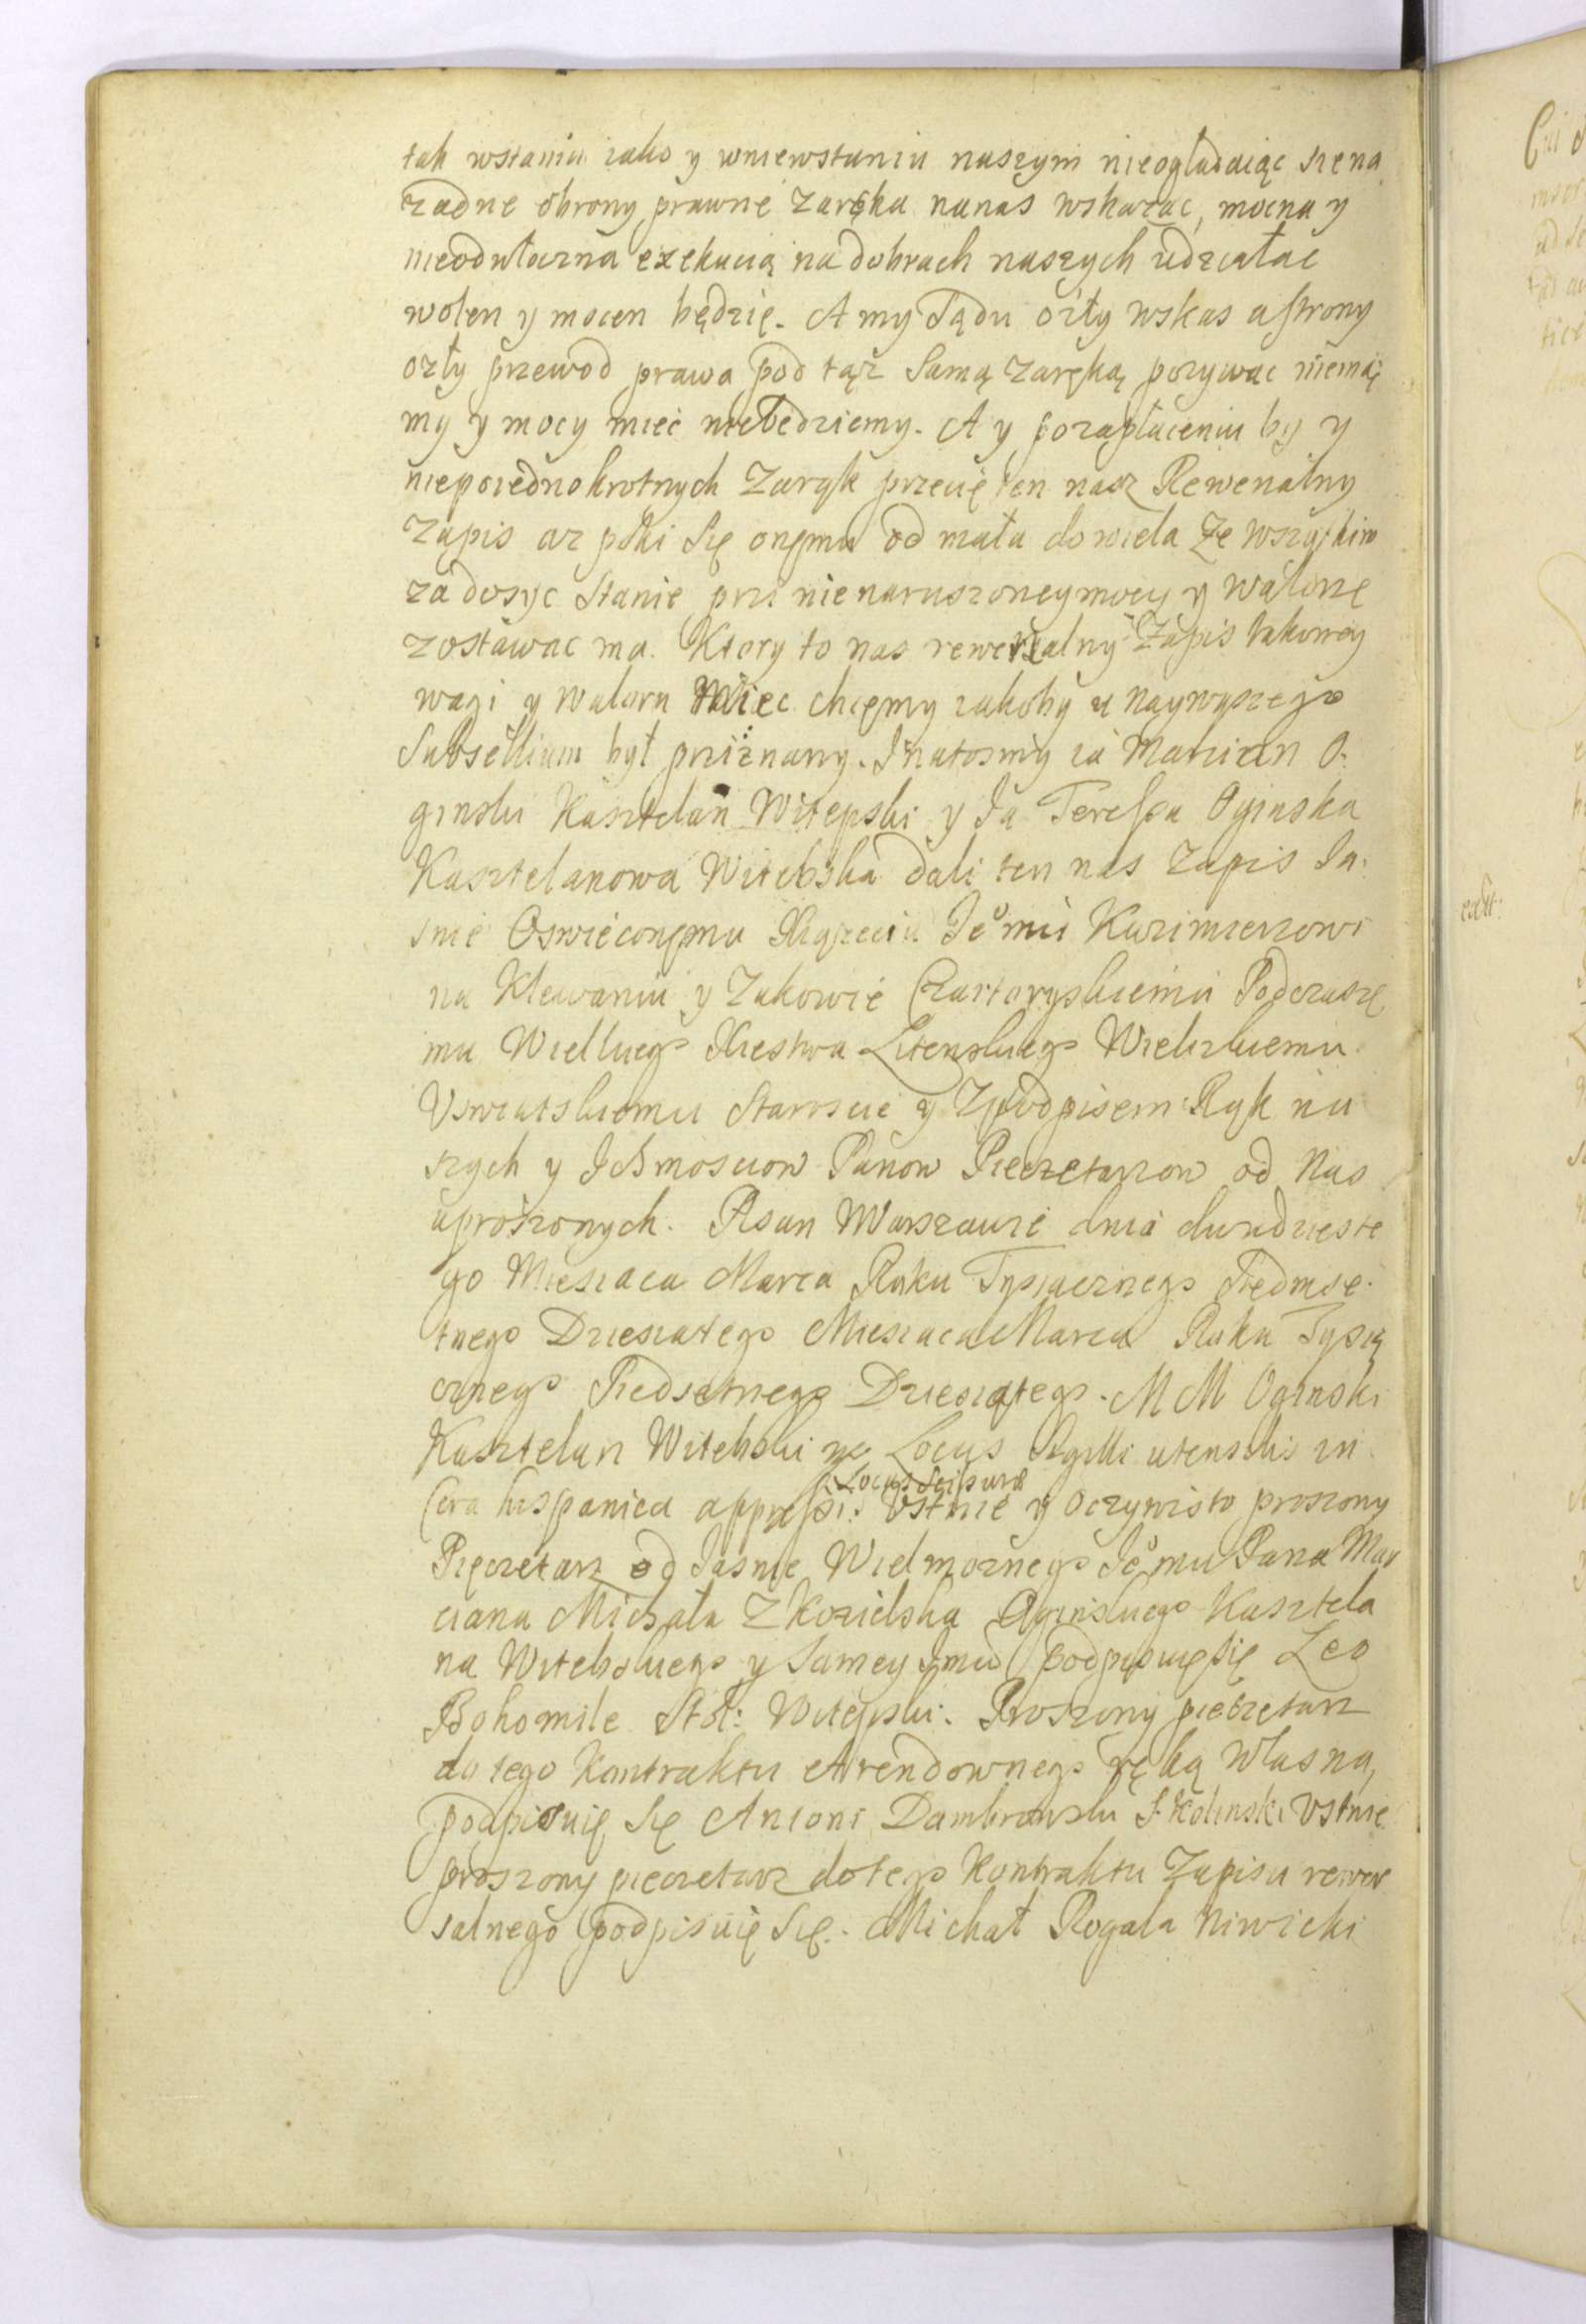 tak wstaniu iako y wniewstaniu naszym nieogladaiąc siena
zadne obrony prawne zaręka nanas wskazac, mocna y
nieodwłoczna exekucią na dobrach naszych udziałac
wolen y mocen będzię. A my Sądu ozły wskas astrony
ozły przewod prawa pod tąż Samą zaręką pozywac niemaię
my y mocy mieć niebędziemy. A y pozapłaceniu by y
nieporednokrotnych Zaręk przecię ten nasz Rewersalny
Zapis az poki Się onęmu od mała do wiela Ze wszystkim
zadosyc Stanie przi nienaruszoney mocy y walorzę
zostawac ma. Ktory to nas rewersalny Zapis takowey
wagi y waloru miec chcęmy iakoby u Naywyszego
Subsellium był priznany. Inatosmy ia Marian O:
ginski Kasztelan Witepski y Ia Teressa Oginska
Kasztelanowa Witebska dali ten nas Zapis Ia:
snie Oswieconęmu Xiązeciu Ie͠o mci Kazimierzowi
na Klewaniu y Zukowie Czartoryskiemu Podczaszę
mu Wielkiego Xiestwa Litewskiego Wieliskiemu
Uswiatskiemu Staroscie y Zpodpisem Ręk na
szych y Ichmosciow Panow Pieczetarzow od Nas
uproszonych. Pisan Warszawie dnia dwudzieste
go Miesiaca Marca Roku Tysiacznego Siedmse:
tnego Dziesiatego Miesiaca Marca Roku Tysią
cznego Siedsetnego Dziesiątego. M M Oginski
Kasztelan Witebski Locus Sygilli utensilis in
Locus Scisurae
Cera hispanica appressi: Ustnie y Oczywisto proszony
Pięczetarz od Jasnie Wielmoznego Ie͠o mci Pana Mar
ciana Michała Z Kozielska Oginskiego Kasztela
na Witebskiego y Samey Imci podpisuię się Leo
Bohomile Stol: Witepski: Proszony pieczetarz
do tego Kontraktu Arendownego ręką własną,
podpisuię Się Antoni Dambrowski S. Kolinski Ustnie
proszony pieczetarz do tego Kontraktu Zapisu rewer
salnego podpisuię Się. Michał Rogala Niwicki